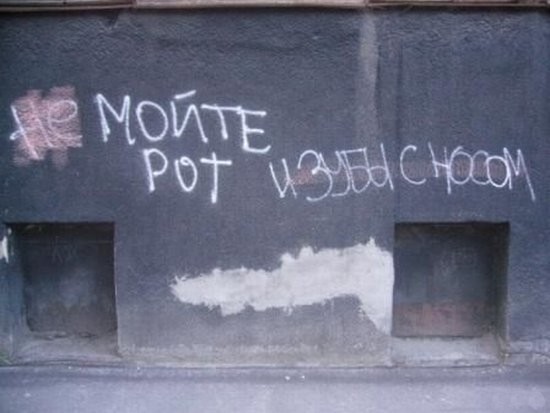 не МОЙТЕ
РОТ И ЗУБЫ С НОСОМ